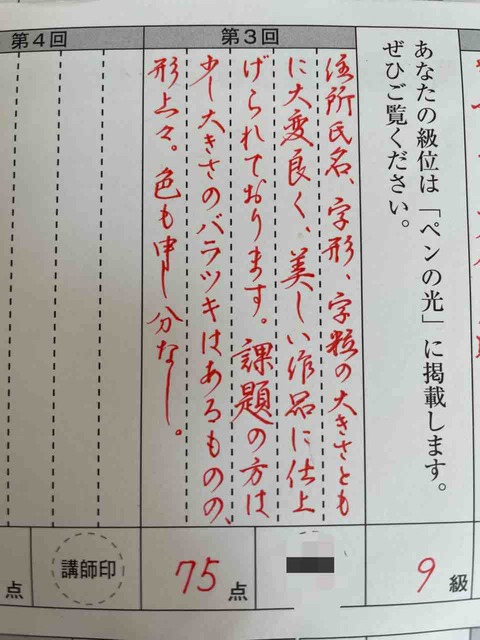 あなたの級位は「ペンの光」に掲載します。
ぜひご覧ください。
9級
第3回
住所氏名、字形、字粒の大きさとも
に大変良く、美しい作品に仕上
げられております。課題の方は
少し大きさのバラツキはあるものの、
形上々。色も申し分なし。
75点
第4回
講師印
点